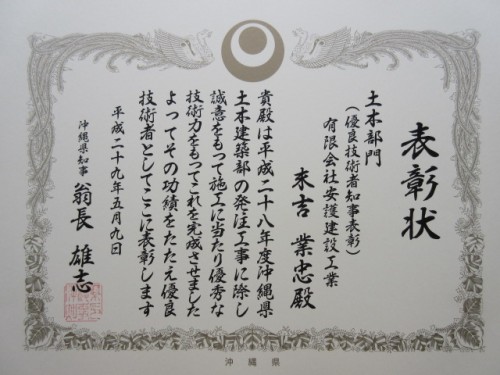 表彰状
土木部門
(優良技術者知事表彰)
有限会社安護建設工業
末吉 業忠殿
貴殿は平成二十八年度沖縄県
土木建築部の発注工事に際し
誠意をもって施工に当たり優秀な
技術力をもってこれを完成させました
よってその功績をたたえ優良
技術者としてここに表彰します
平成二十九年五月九日
沖縄県知事 翁長 雄志
沖縄県